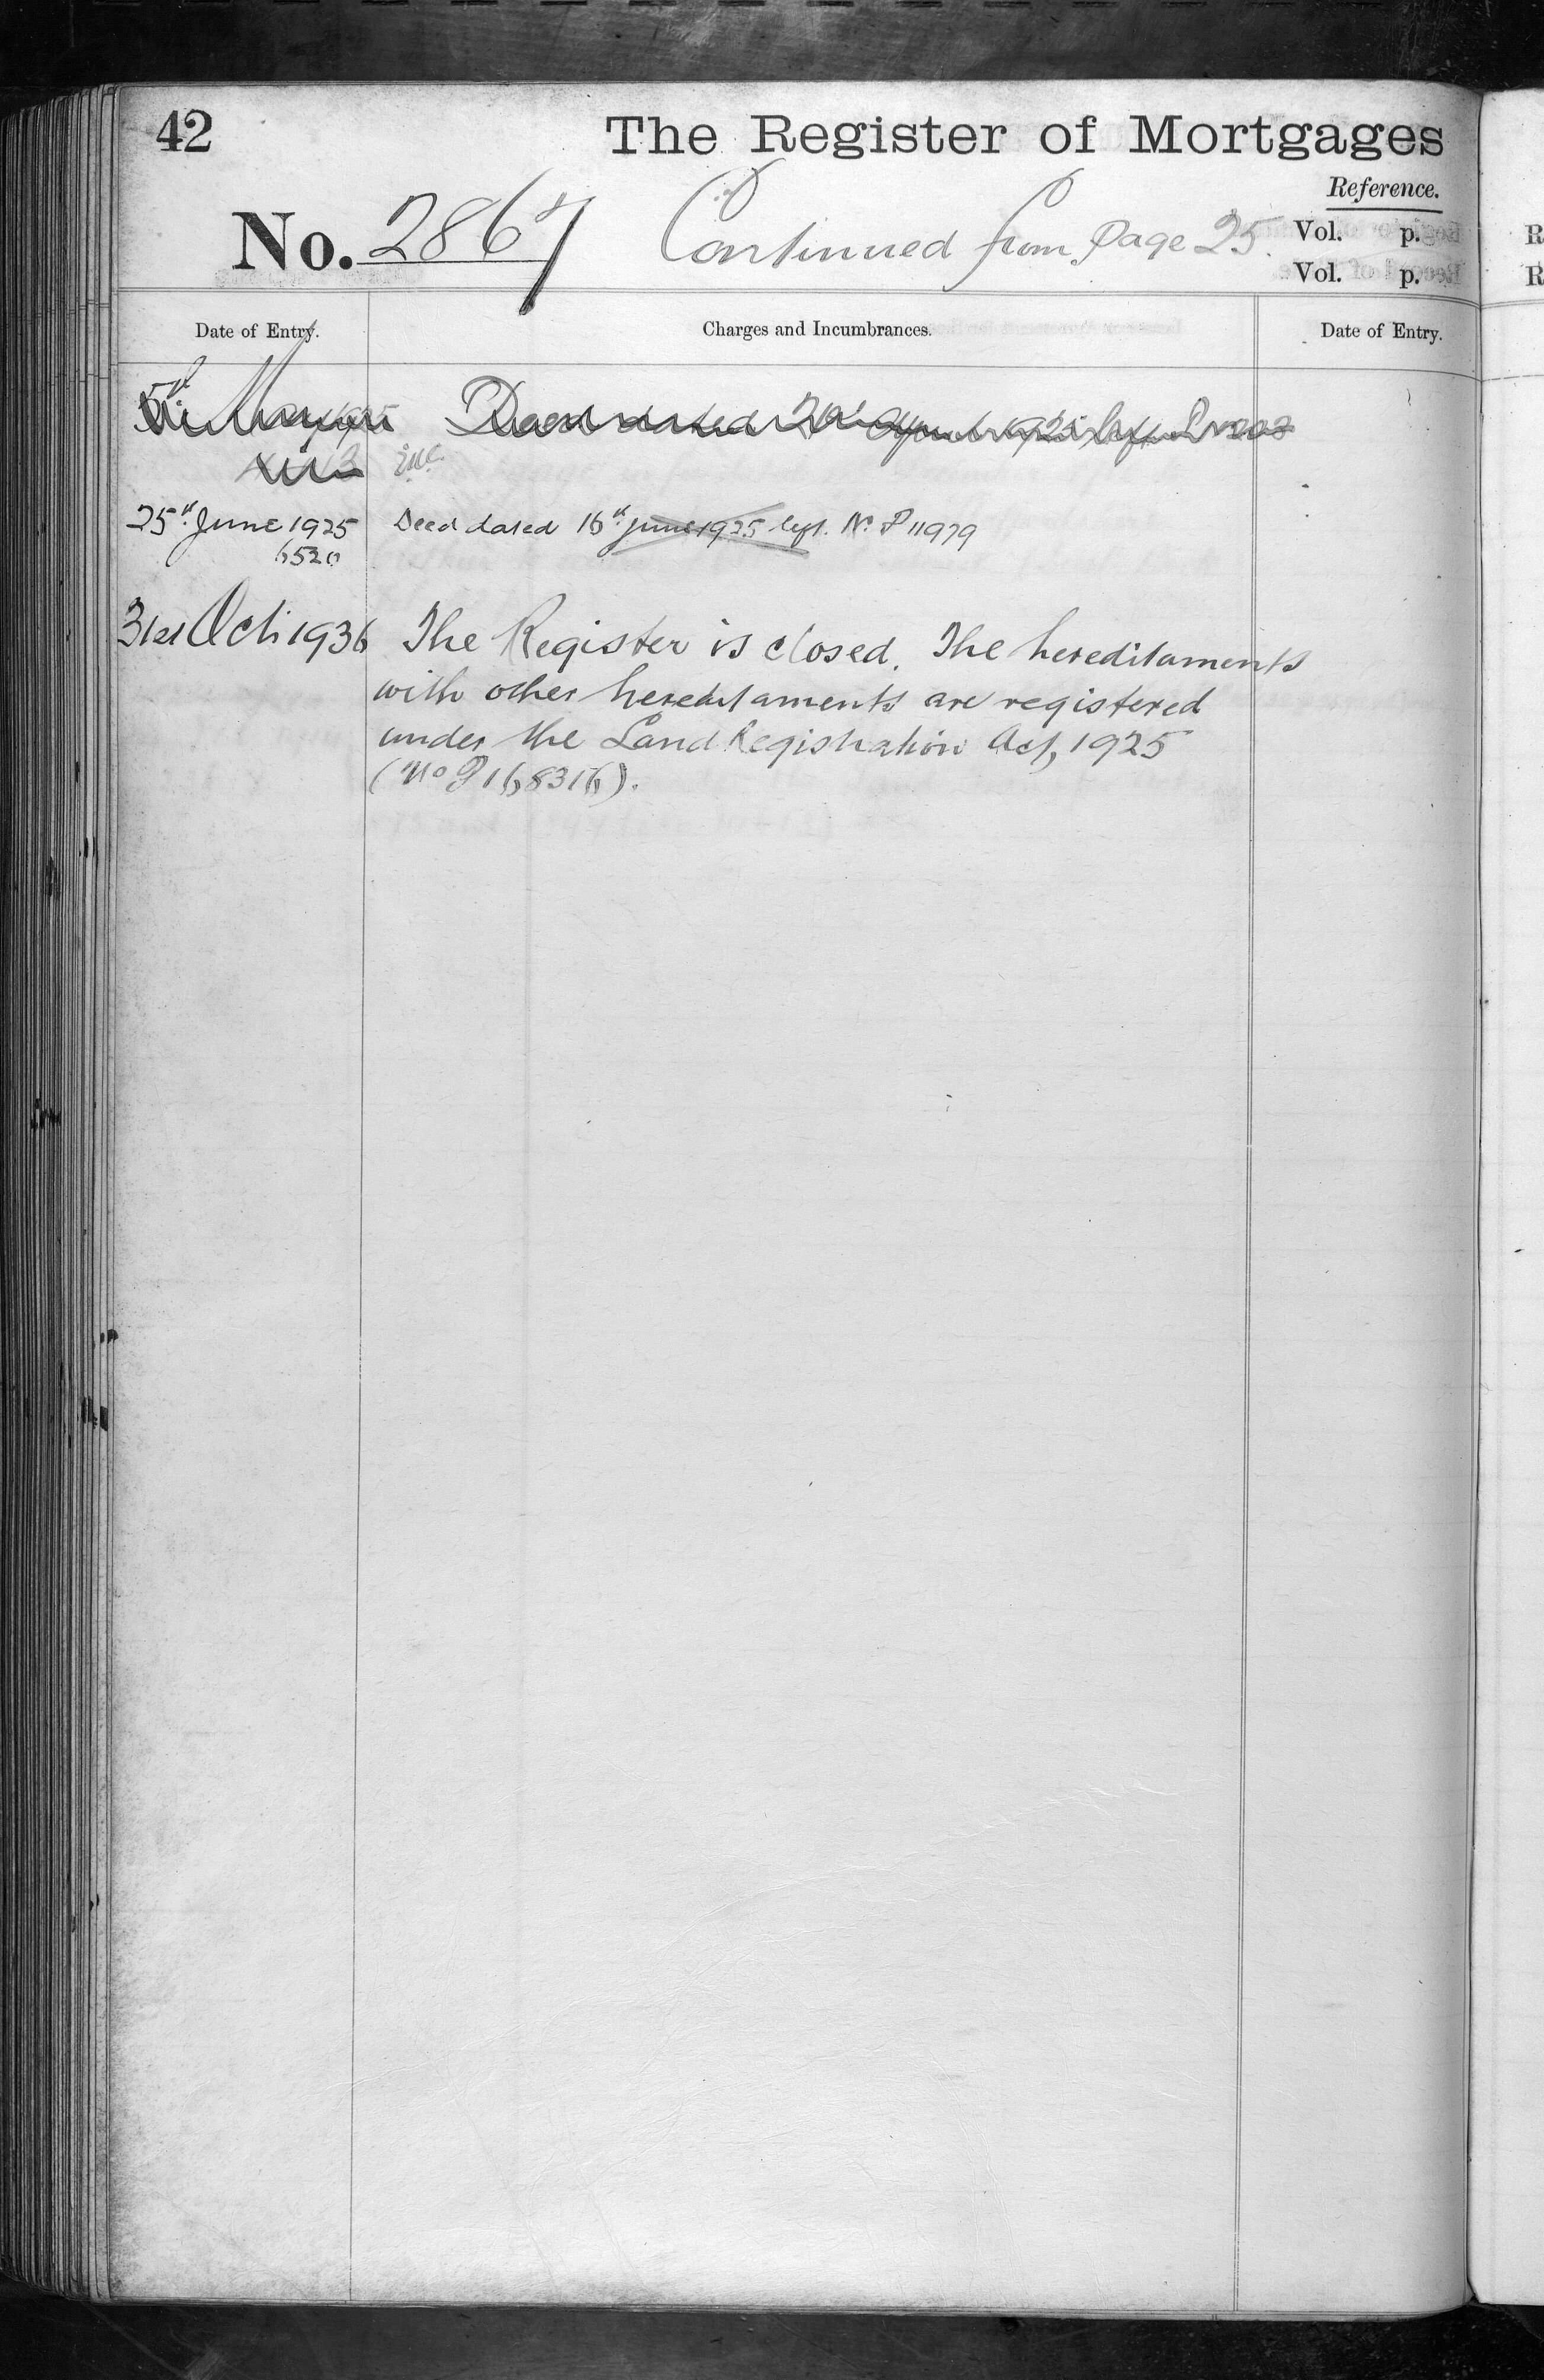 42 The Register of Mortgages
Reference.
No. 2867 Continued from page 25. Vol. p.
Vol. p.
Date of Entry. Charges and Incumbrances. Date of Entry.
5th May Deed dated April 1925 left
25th June 1925 Deed dated 16th June 1925 left. No. P 11979
6520
31st Oct: 1936 The Register is closed. The hereditaments
with other hereditaments are registered
under the Land Registration Act, 1925
(No P 168316).